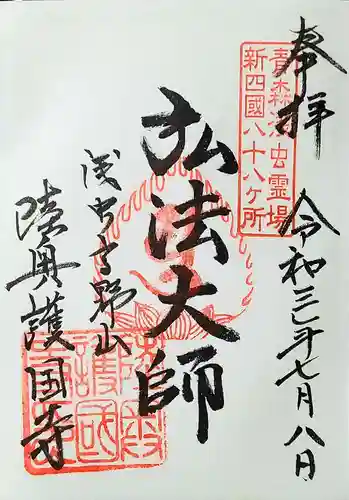 奉拝
令和三年七月八日
青森浅虫霊場
新四國八十八ヶ所
弘法大師
浅虫高野山
陸奥護国寺